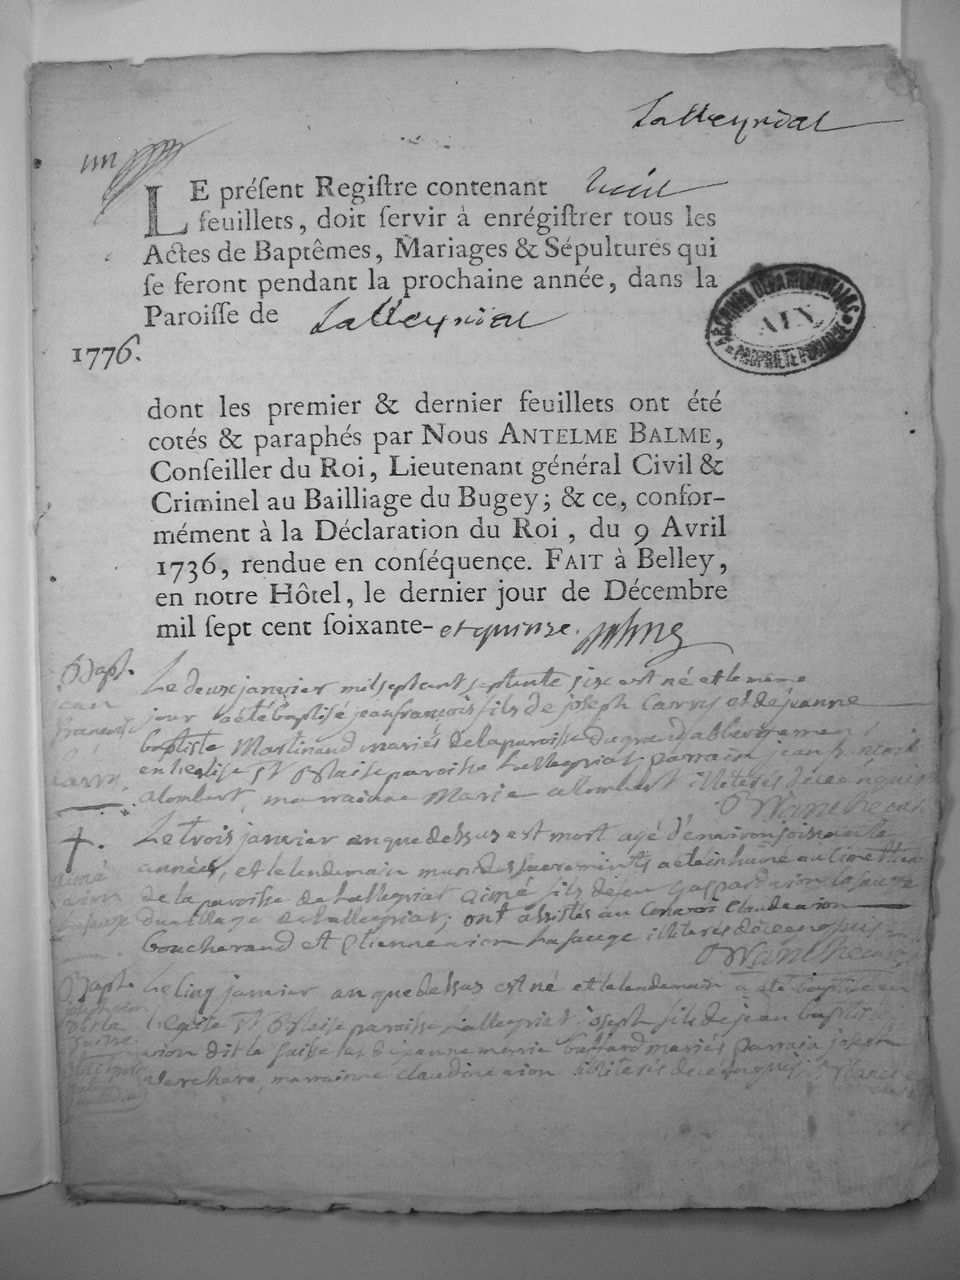 Lalleyriat
un
LE préſent Regiſtre contenant huit
feuillets, doit ſervir à enrégiſtrer tous les
Actes de Baptêmes, Mariages & Sépultures qui
ſe feront pendant la prochaine année, dans la
Paroiſſe de Lalleyriat
ARCHIVES DÉPARTEMENTALES
AIN
PROPRIÉTÉ PUBLIQUE
1776.
dont les premier & dernier feuillets ont été
cotés & paraphés par Nous ANTELME BALME,
Conſeiller du Roi, Lieutenant général Civil &
Criminel au Bailliage du Bugey; & ce, confor-
mément à la Déclaration du Roi, du 9 Avril
1736, rendue en conſéquence. FAIT à Belley,
en notre Hôtel, le dernier jour de Décembre
mil ſept cent ſoixante- et quinze.
Bapt. Le deux janvier mil sept cent septente six est né et le meme
jean
jour a été baptisé jean françois fils de joseph Carry et de jeanne
françois
baptiste Martinaud mariés de la paroisse du grand abbergement
en l'eglise St Blaise paroisse Lalleyriat parrain jean françois
alombert, marraine Marie alombert illiterés de ce enquis
†. Le trois janvier an que dessus est mort agé d'environ soissante
aimé
années, et le lendemain muni des sacrements a eté inhumé au cimettiere
de la paroisse de Lalleyriat aimé fils de feu Gaspard vion la sauge
du village de Lalleyriat; ont assistés au convoi Claude vion
boucherand et Etienne vion la sauge illiterés de ce enquis
Bapt. Le cinq janvier an que dessus est né et le lendemain a eté baptisé en
l'eglise St Blaise paroisse Lalleyriat joseph fils de jean baptiste
vion dit la et de jeanne marie mariés parrain joseph
marraine claudine vion illiterés de ce enquis